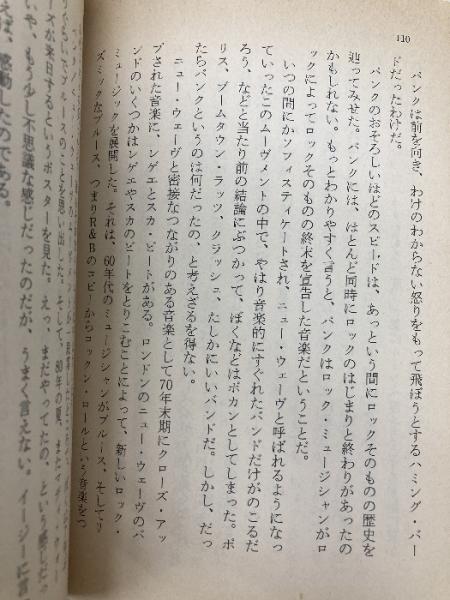 110
パンクは前を向き、わけのわからない怒りをもって飛ぼうとするハミング・バー
ドだったわけだ。
パンクのおそろしいほどのスピードは、あっという間にロックそのものの歴史を
辿ってみせた。パンクには、ほとんど同時にロックのはじまりと終わりがあったの
かもしれない。もっとわかりやすく言うと、パンクはロック・ミュージシャンがロ
ックによってロックそのものの終末を宣告した音楽だということだ。
いつの間にかソフィスティケートされ、ニュー・ウェーヴと呼ばれるようになっ
ていったこのムーヴメントの中で、やはり音楽的にすぐれたバンドだけがのこるだ
ろう、などと当たり前の結論にぶつかって、ぼくなどはポカンとしてしまった。ポ
リス、ブームタウン・ラッツ、クラッシュ、たしかにいいバンドだ。しかし、だっ
たらパンクというのは何だったの、と考えざるを得ない。
ニュー・ウェーヴと密接なつながりのある音楽として70年末期にクローズ・アッ
プされた音楽に、レゲエとスカ・ビートがある。ロンドンのニュー・ウェーヴのバ
ンドのいくつかはレゲエやスカのビートをとりこむことによって、新しいロック・
ミュージックを展開した。それは、60年代のミュージシャンがブルース、そしてリ
ズミックなブルース、つまりR&Bのコピーからロックン・ロールという音楽をつ
のことを思い出した。そして、80年の夏、
ーズが来日するというポスターを見た。えっ、まだやってたの、という感じだっ
いや、もう少し不思議な感じだったのだが、うまく言えない。イージーに言
えば、感動したのである。